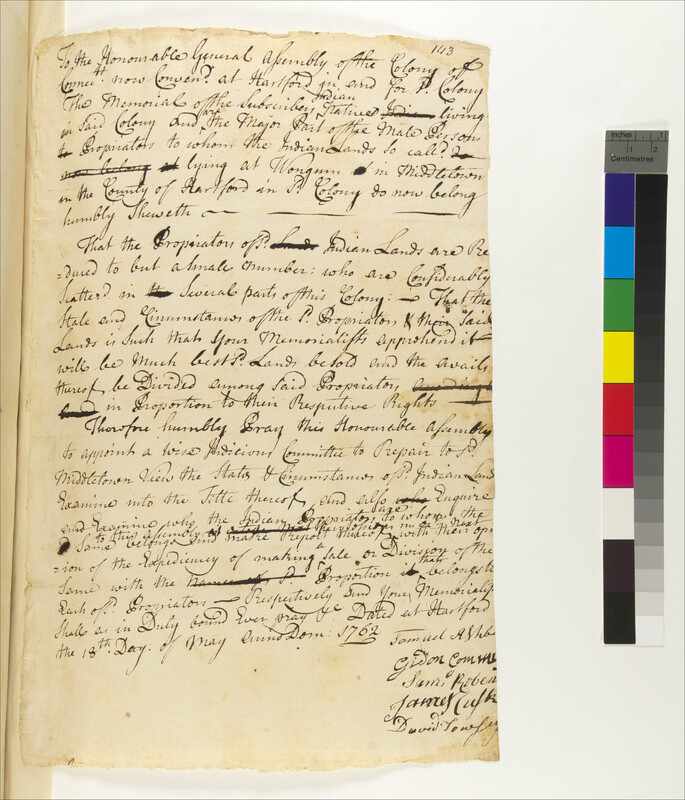 143
To the Honourable General Assembly of the Colony of
Connectt. now Conven'd. at Hartford in, and for Sd. Colony
The Memorial of the Subscribers Indian Natives living
in Said Colony and are the Major Part of the Male Persons
Propriators to whom the Indian Lands so call'd.
now belong lying at Wongum in Middletown
in the County of Hartford in Sd. Colony do now belong
humbly Sheweth
That the Propriators of Sd. Indian Lands are Re
=duced to but a Smale number: who are Considerably
Scatter'd in Several parts of this Colony: — That the
State and Circumstances of the Sd. Propriators & their Said
Lands is Such that your Memorialists apprehend it
will be Much best Sd. Lands be sold and the avails
thereof be Divided among Said Propriators
in Proportion to their Respective Rights
Therefore humbly Pray this Honourable Assembly
to appoint a wise Judicious Committee to Repair to Sd.
Middletown View the State & Circumstances of Sd. Indian Land
Examine into the Title thereof, and also Enquire
and Examine who the Indian Propriators are to whom the
Same belongs and make Report thereof with their opn
to this Assembly in Next
=ion of the Expediency of making a Sale or Division of the
Same with the Proportion that belongs to
Each of Sd. Propriators — Respectively and Your Memorialists
Shall as in Duty bound Ever pray &c Dated at Hartford
the 18th. Day: of May Anno Dom: 1762
Samuel Ashb
Gidon Comme
Samll Rober
James Cusk
David Towsey
Inches
1
2
Centimetres